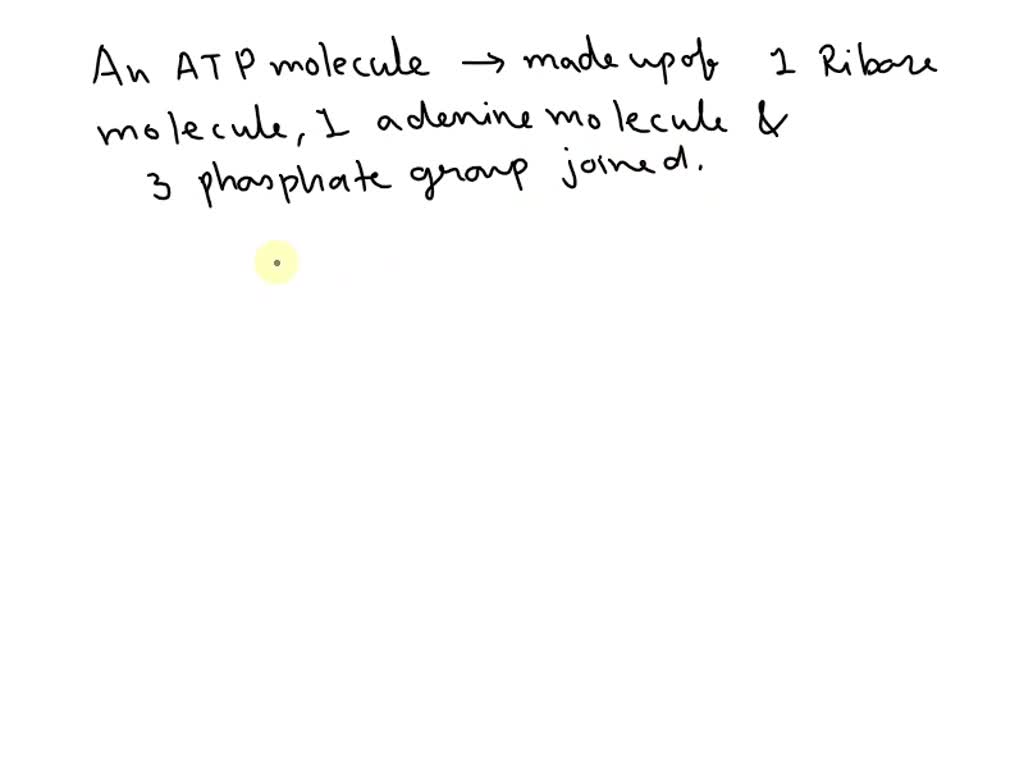 An ATP molecule → made up of 1 Ribose
molecule, 1 adenine molecule &
3 phosphate group joined.